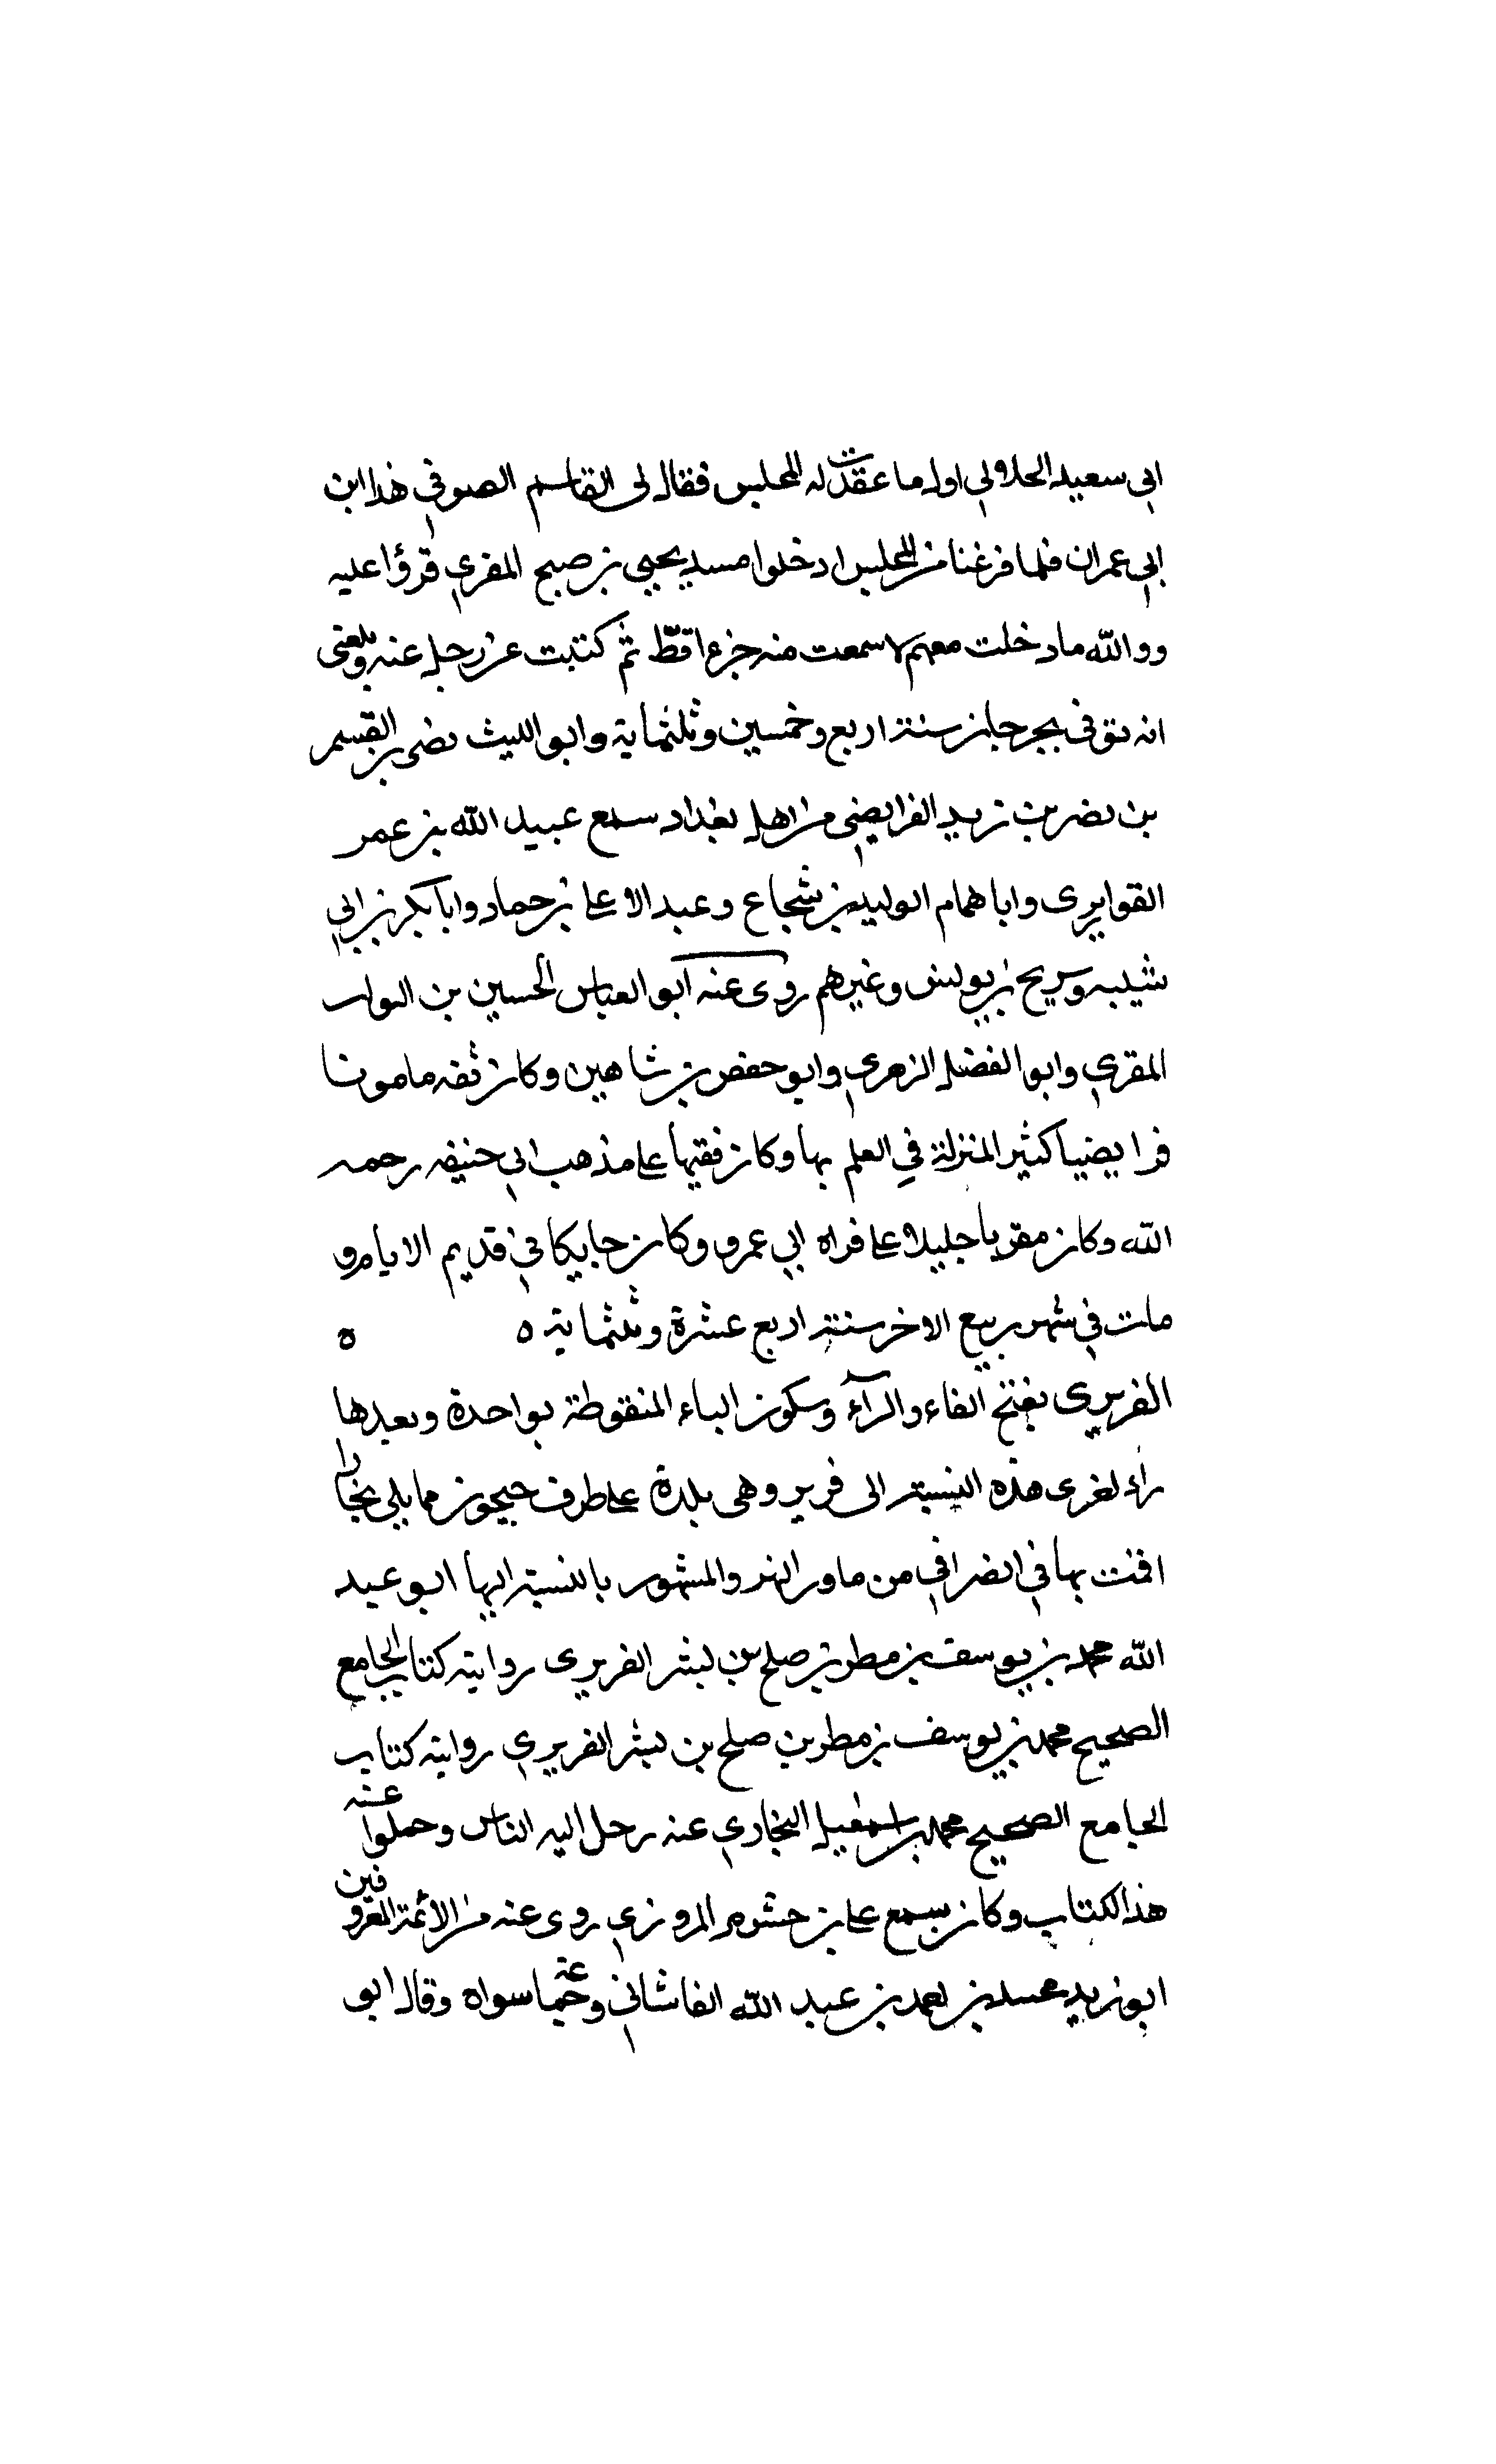 ابي سعيد الحلاولي اول ما عقدت له المجلس فقال لي القاسم الصوفي هذا ابن
ابي عمران فلما فرغنا من المجلس ادخلوا مسد يحيى بن صبح المقري قرؤا عليه
ووالله ما دخلت معهم لا سمعت منه جزءا قط ثم كتبت عن رجل عنه وبلغني
انه توفي بجرجان سنة اربع وخمسين وثلثماية وابو الليث نصر بن القسم
بن نصر بن زيد الفرايضي من اهل بغداد سمع عبيد الله بن عمر
القواريري وابا همام الوليد بن شجاع وعبد الاعلى بن حماد وابا بكر بن ابي
شيبه وسريح بن يونس وغيرهم روى عنه ابو العباس الحسين بن البواب
المقري وابو الفضل الزهري وابو حفص بن شاهين وكان ثقه مامونا
فرايضيا كثير المنزلة في العلم بها وكان فقيها على مذهب ابي حنيفه رحمه
الله وكان مقريا جليلا على قراه ابي عمرو وكان حايكا في قديم الايام و
مات في شهر ربيع الاخر سنة اربع عشرة وثلثماية ه ه
الفربري بفتح الفاء والرآء وسكون الباء المنقوطة بواحدة وبعدها
راء لغرى هذه النسبة الى فربر وهي بلدة على طرف جيحون مما يلي بخارا
اقمت بها في انصرافي من ماورا النهر والمشهور بالنسبة اليها ابو عبد
الله محمد بن يوسف بن مطر بن صلح بن بشر الفربري رواية كتاب الجامع
الصحيح محمد بن يوسف بن مطر بن صلح بن بشر الفربري رواية كتاب
الجامع الصحيح محمد بن اسمعيل البخاري عنه رحل اليه الناس وحملوا عنه
هذا الكتاب وكان سمع علي بن خشرم المروزي روى عنه من الائمة المعروفين
ابو زيد محمد بن احمد بن عبد الله الفاشاني وعنه سواه وقال ابو